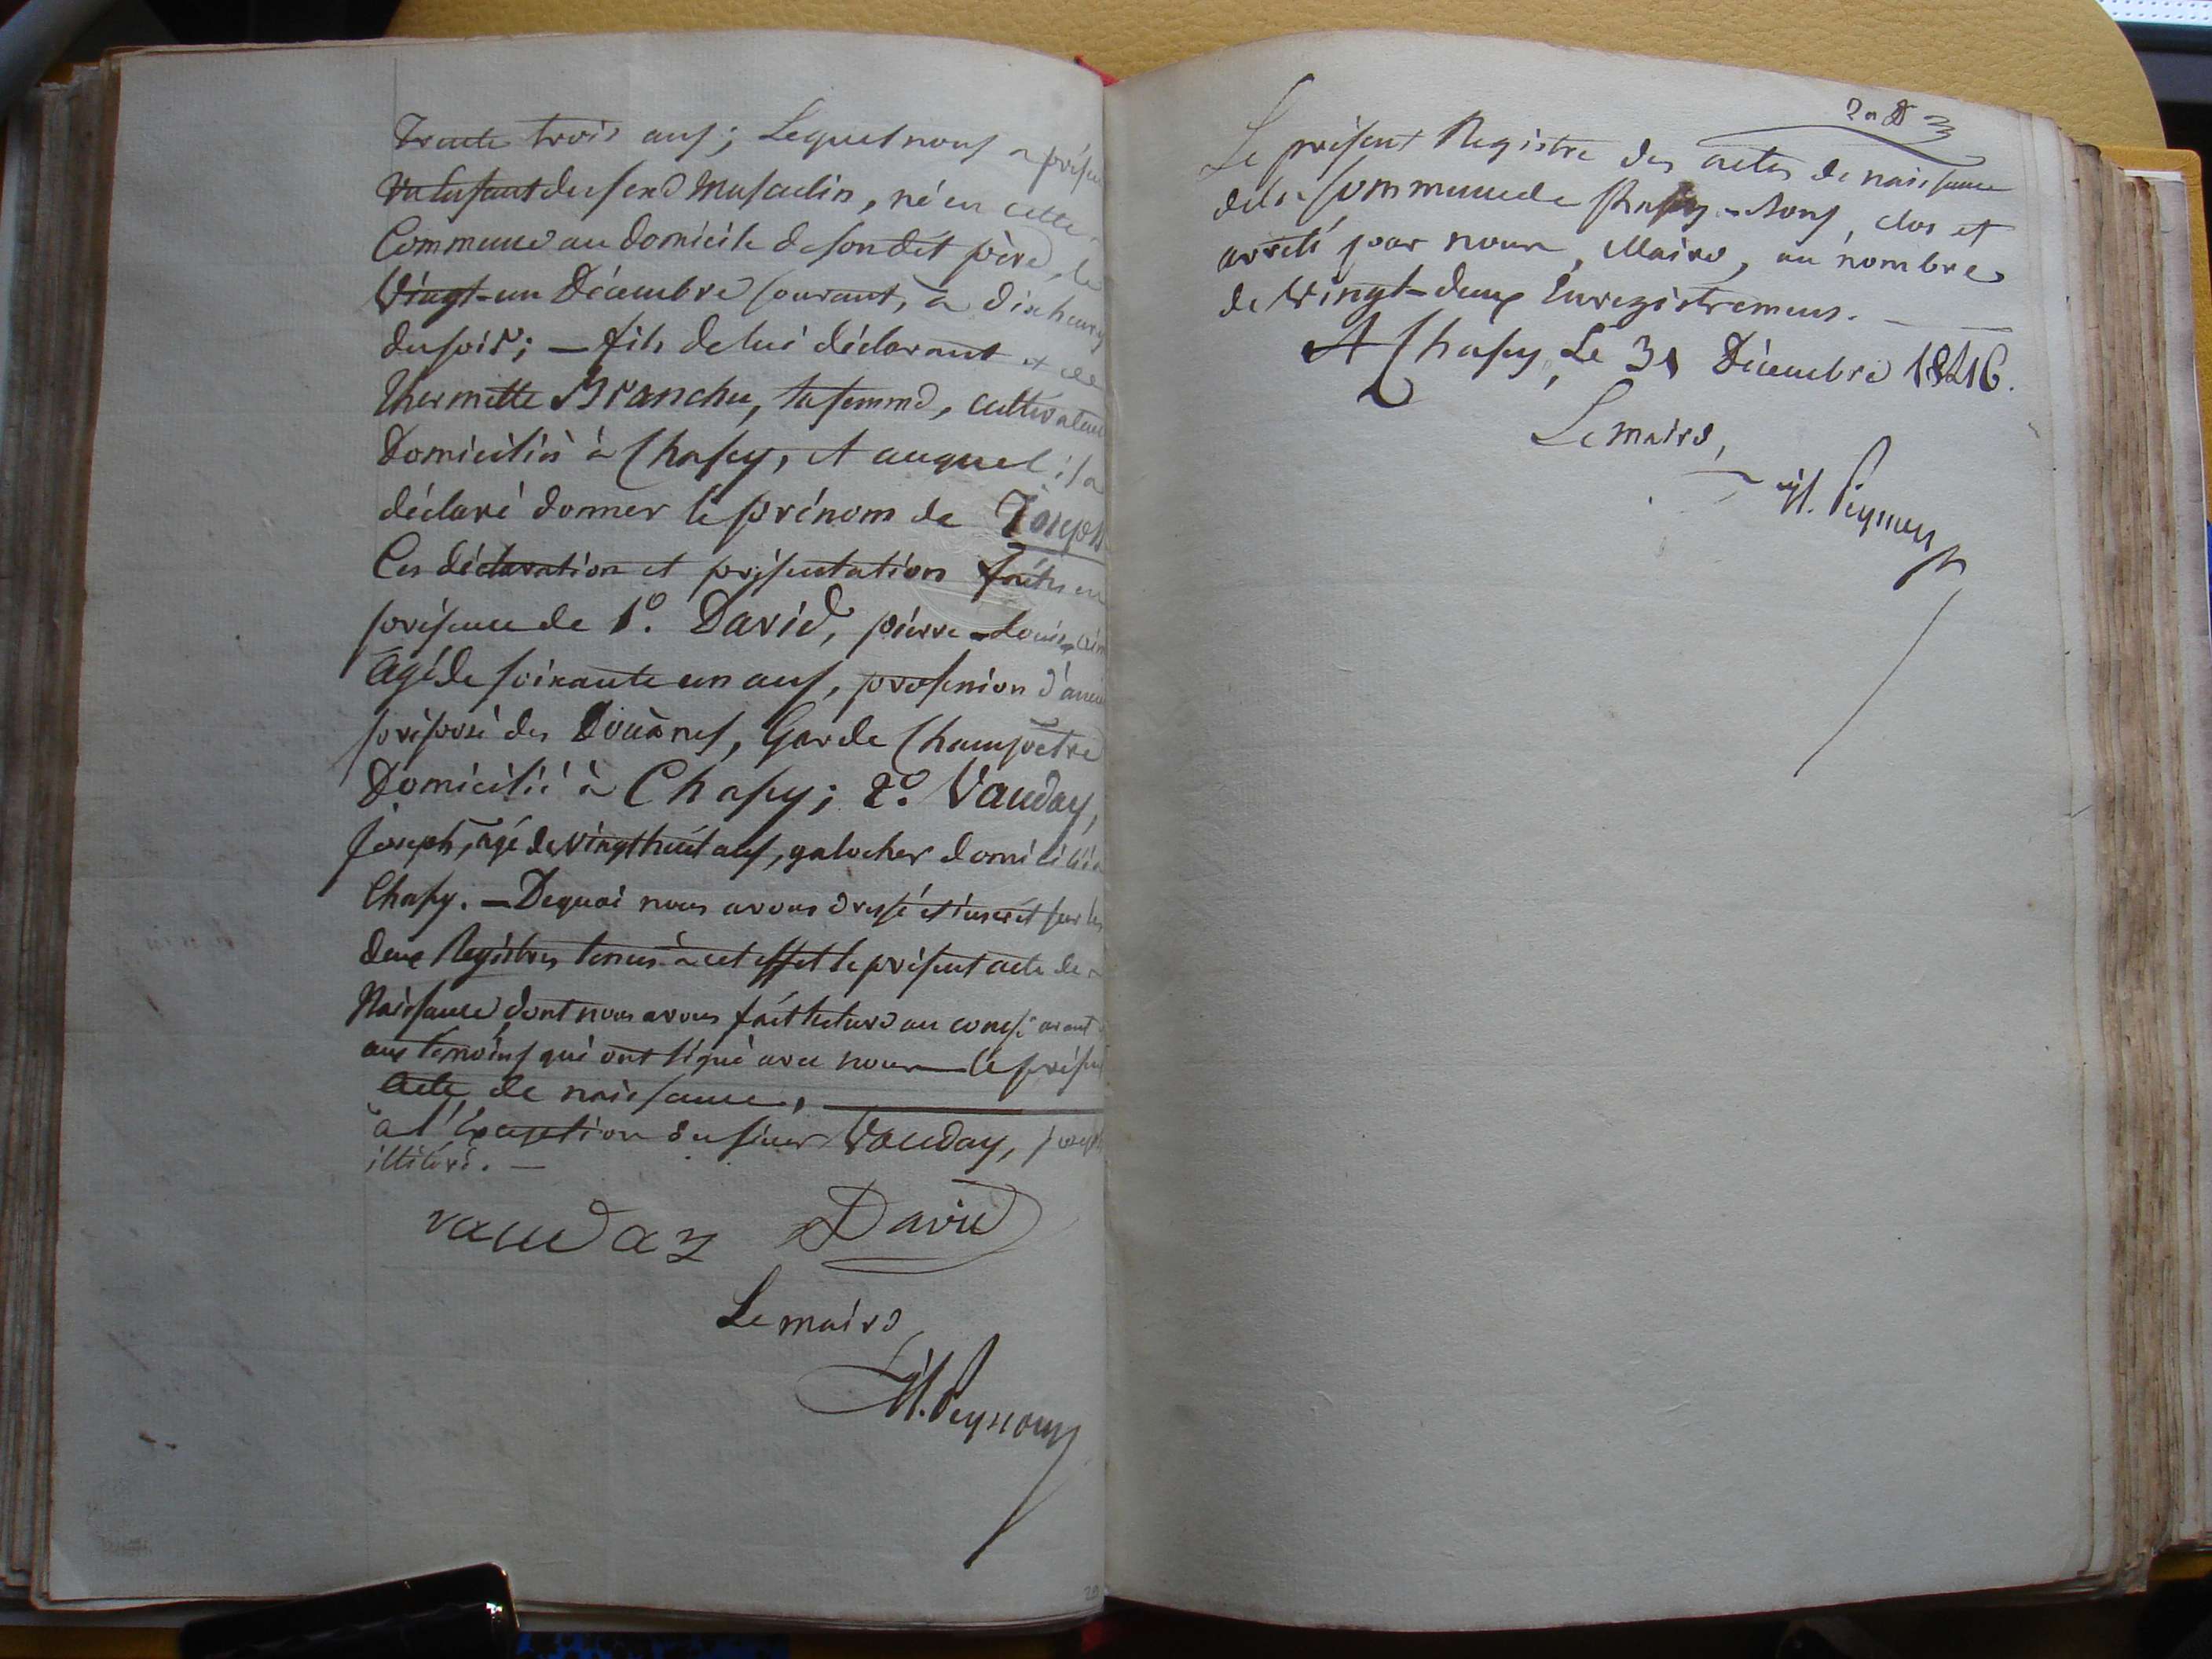 Trente trois ans; Lequel nous a présen
un Enfant du sexe Masculin, né en cette
Commune au domicile de son dit père, le
Vingt-un Décembre Courant, à dix heures
du soir; — fils de lui déclarant et de
Thermette Blanche, sa femme, cultivateurs
Domiciliés à Chapy, et auquel il a
déclaré donner le prénom de Joseph
Ces déclaration et présentation faites en
présence de 1.° David, pierre-Louis,
agé de soixante un ans, profession d'ancien
préposé des Douànes, Garde Champètre
Domicilié à Chapy; 2.° Vauday,
Joseph, agé de vingt huit ans, galocher domicilié à
Chapy. — Dequoi nous avons dressé et inscrit sur les
deux Registres tenus à cet effet le présent acte de
Naissance, dont nous avons fait lecture au comparant
aux temoins qui ont signé avec nous — le présent
acte de naissance, —
à l'exception du sieur Vauday, joseph
illitéré. —
vauday David
Le maire,
Le présent Registre des actes de naissance
dela Commune de , clos et
arrêté par nous, Maire, au nombre
de Vingt-deux Enregistremens. —
A Chapy, Le 31 Décembre 1816.
Le maire,